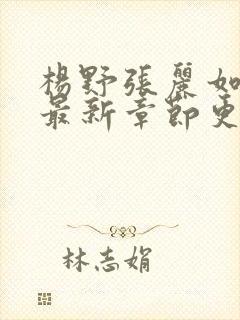 楊野張麗如
最新章節更
林志娟